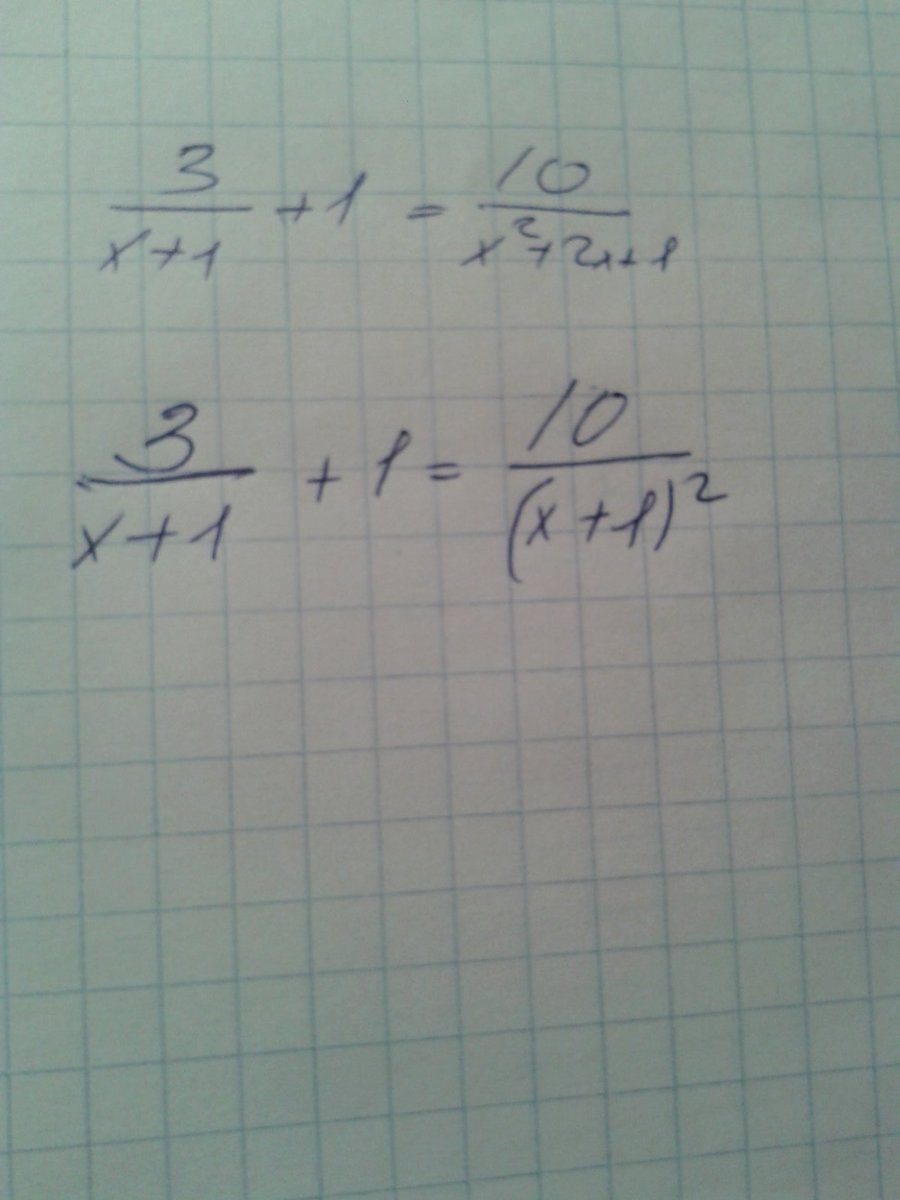 3/(x+1) + 1 = 10/(x²+2x+1)
3/(x+1) + 1 = 10/(x+1)²